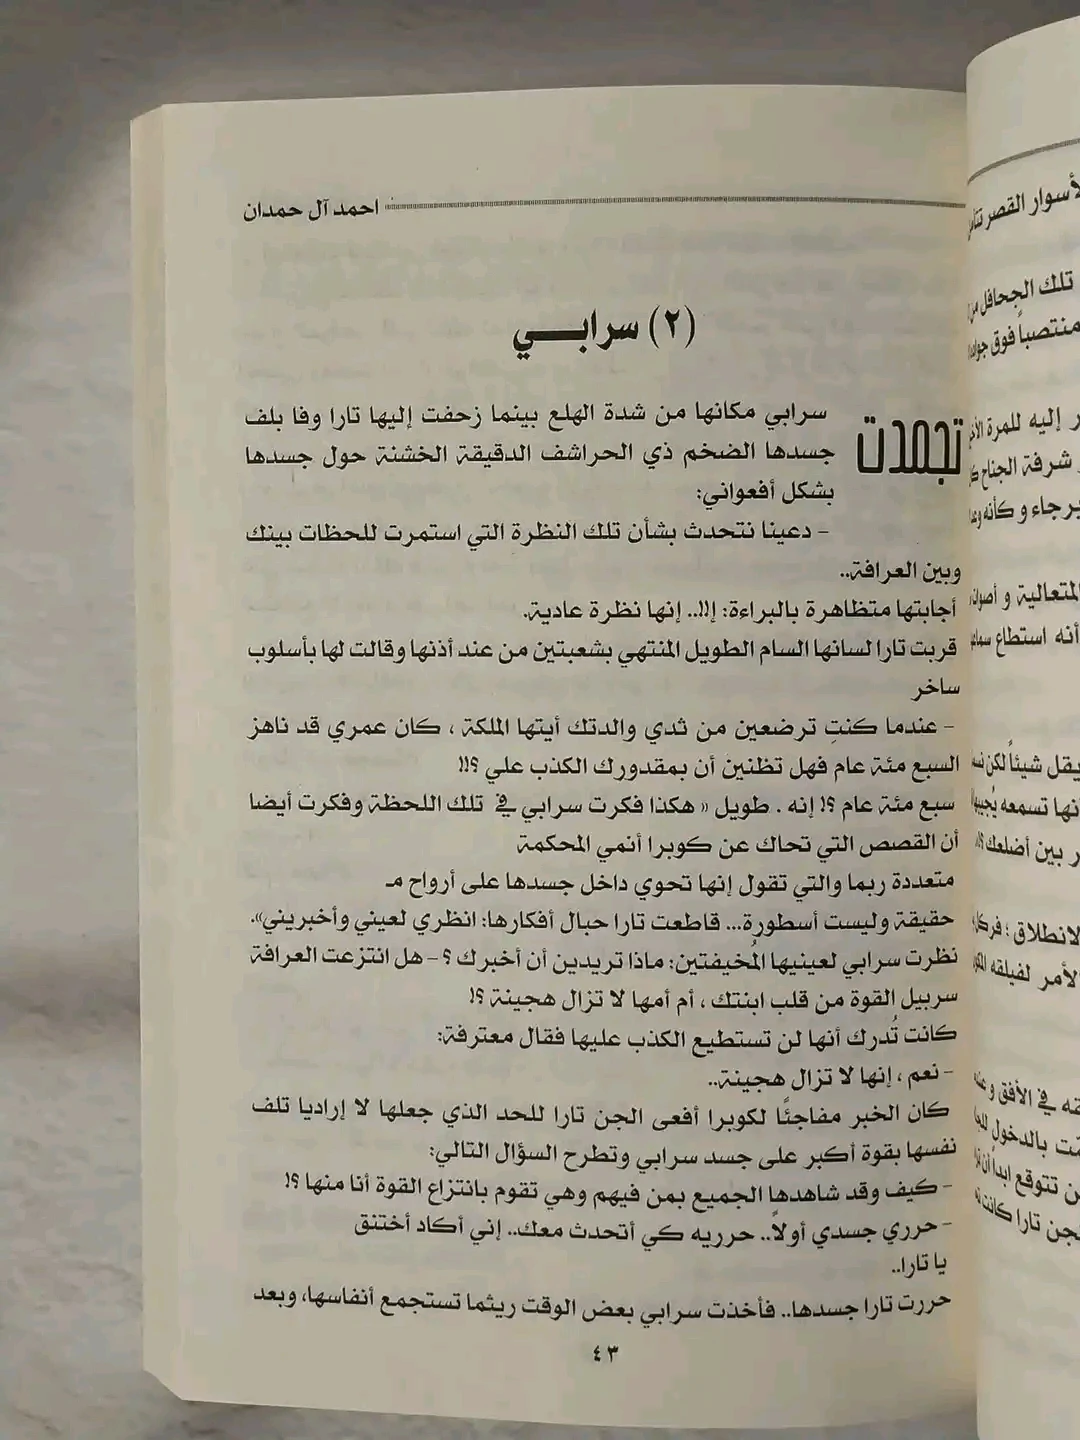 احمد آل حمدان
(٢) سرابـــي
تجمدت سرابي مكانها من شدة الهلع بينما زحفت إليها تارا وفا بلف
جسدها الضخم ذي الحراشف الدقيقة الخشنة حول جسدها
بشكل أفعواني:
- دعينا نتحدث بشأن تلك النظرة التي استمرت للحظات بينك
وبين العرافة..
أجابتها متظاهرة بالبراءة: إ!!.. إنها نظرة عادية.
قربت تارا لسانها السام الطويل المنتهي بشعبتين من عند أذنها وقالت لها بأسلوب
ساخر
- عندما كنتِ ترضعين من ثدي والدتك أيتها الملكة ، كان عمري قد ناهز
السبع مئة عام فهل تظنين أن بمقدورك الكذب علي ؟!!
سبع مئة عام ؟! إنه . طويل « هكذا فكرت سرابي في تلك اللحظة وفكرت أيضا
أن القصص التي تحاك عن كوبرا أنمي المحكمة
متعددة ربما والتي تقول إنها تحوي داخل جسدها على أرواح مـ
حقيقة وليست أسطورة... قاطعت تارا حبال أفكارها: انظري لعيني وأخبريني».
نظرت سرابي لعينيها المُخيفتين: ماذا تريدين أن أخبرك ؟ - هل انتزعت العرافة
سربيل القوة من قلب ابنتك ، أم أمها لا تزال هجينة ؟!
كانت تُدرك أنها لن تستطيع الكذب عليها فقال معترفة:
- نعم ، إنها لا تزال هجينة..
كان الخبر مفاجئًا لكوبرا أفعى الجن تارا للحد الذي جعلها لا إراديا تلف
نفسها بقوة أكبر على جسد سرابي وتطرح السؤال التالي:
- كيف وقد شاهدها الجميع بمن فيهم وهي تقوم بانتزاع القوة أنا منها ؟!
- حرري جسدي أولاً.. حرريه كي أتحدث معك.. إني أكاد أختنق
يا تارا..
حررت تارا جسدها.. فأخذت سرابي بعض الوقت ريثما تستجمع أنفاسها، وبعد
٤٣
لأسوار القصر
تلك الجحافل
منتصباً فوق
إليه للمرة
شرفة الجناح
برجاء و كأنه
المتعالية و
أنه استطاع
يقل شيئاً لكن
نها تسمعه
بين أضلعك
لانطلاق ؛
الأمر لفيلقه
في الأفق و
بالدخول
ن تتوقع ابداً أن
لجن تارا كانت